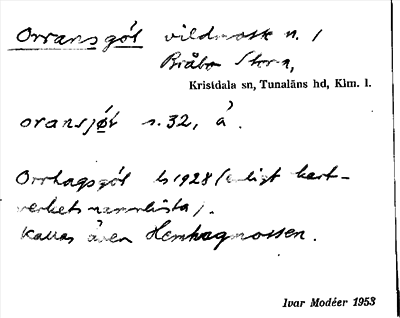 Orransgöl vildmosk n. 1
Bråbo Storn,
Kristdala sn, Tunaläns hd, Klm. l.
oransjøt s. 32, å.
Orrhagsgöl ls 1928 (enligt kart-
verkets namnlista).
Kallas även Hemhagmossen.
Ivar Modéer 1953